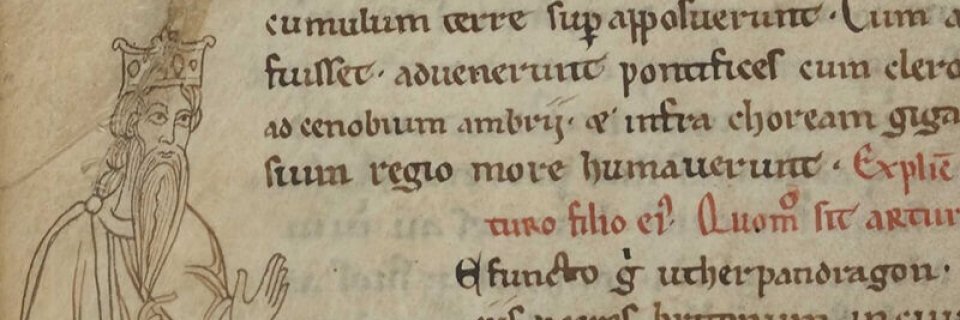 cumulum terre sup apposuerunt. Cum a
fuisset. aduenerunt pontifices cum clero
ad cenobium ambrij. & infra choream giga
suum regio more humauerunt. Explic
turo filio ei. Quom sit artur
functo g utherpandragon.